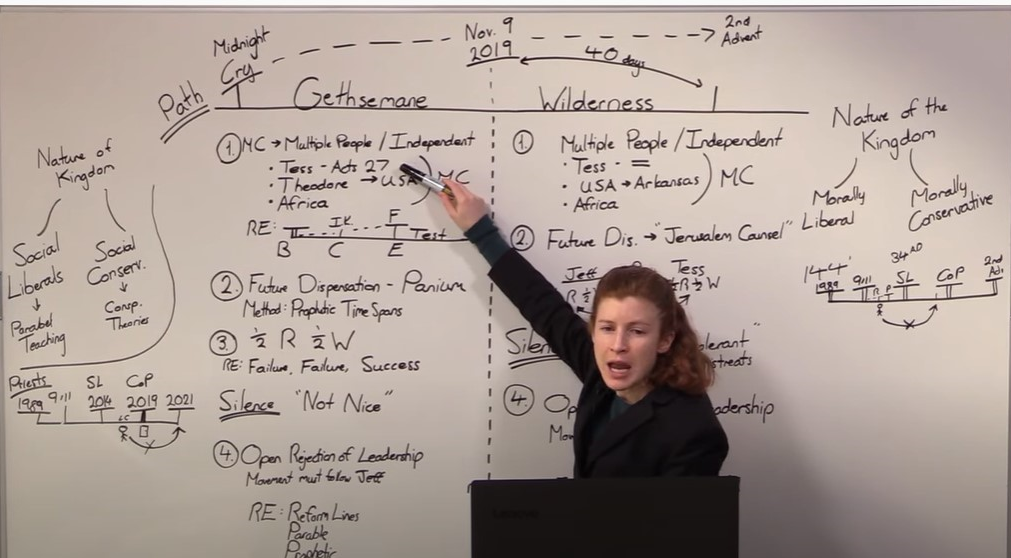 Midnight
Cry
Nov. 9
2019
2nd
Advent
40 days
Path
Gethsemane
Wilderness
Nature of
Kingdom
Social
Liberals
Parabel
Teaching
Social
Conserv.
Consp.
Theories
Priests
1989 9-11 SL 2014 CoP 2019 2021
① MC → Multiple People / Independent
· Tess - Acts 27
· Theodore → USA
· Africa
MC
RE: IK F Test
B C E
② Future Dispensation - Panium
Method: Prophetic Time Spans
③ ½ R ½ W
RE: Failure, Failure, Success
Silence "Not Nice"
④ Open Rejection of Leadership
Movement must follow Jeff
RE: Reform Lines
Parable
Prophetic
① Multiple People / Independent
· Tess - =
· USA → Arkansas
· Africa
MC
② Future Dis. → "Jerusalem Cansel"
Jeff
Tess
R ½
½ W
④
Nature of the
Kingdom
Morally
Liberal
Morally
Conservative
144
1989 9/11 R P 34 AD SL CoP 2nd Ad.